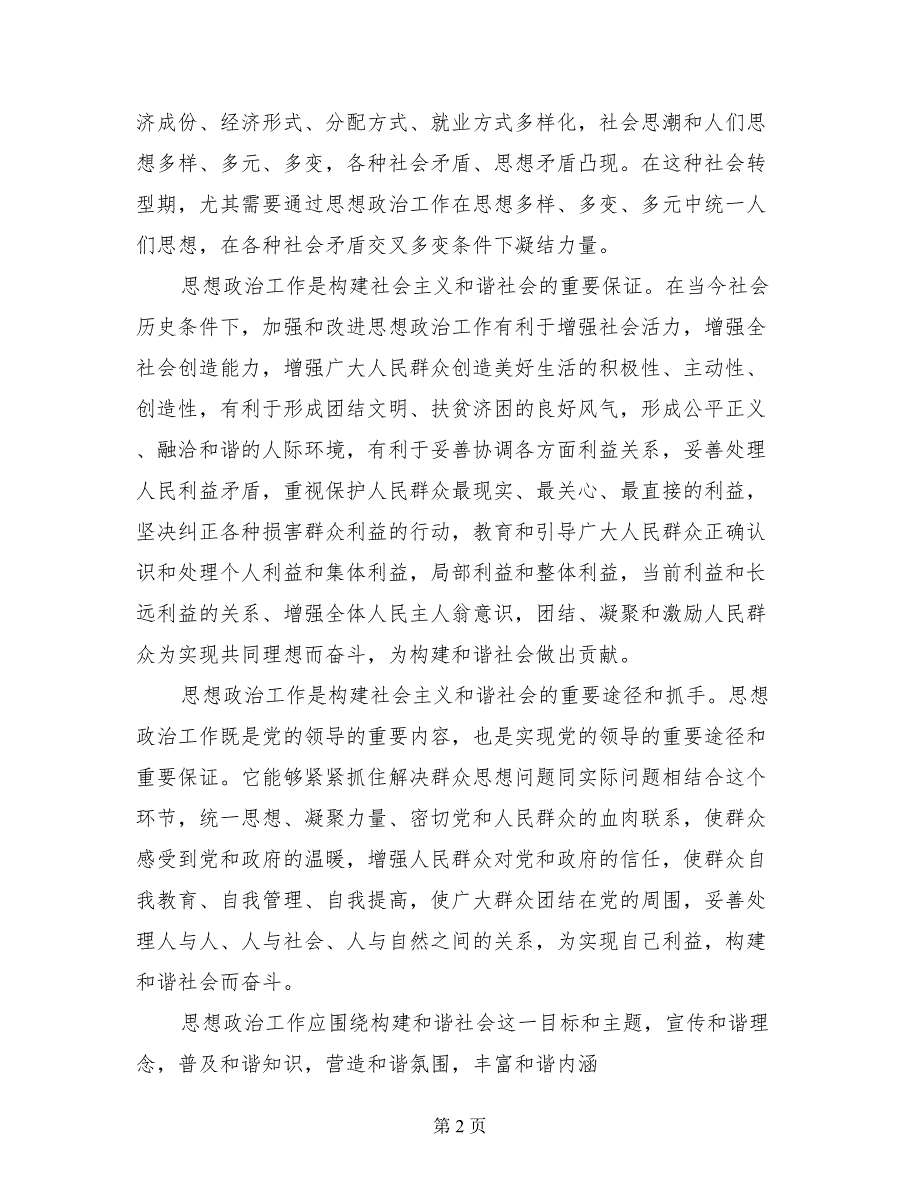 济成份、经济形式、分配方式、就业方式多样化，社会思潮和人们思
想多样、多元、多变，各种社会矛盾、思想矛盾凸现。在这种社会转
型期，尤其需要通过思想政治工作在思想多样、多变、多元中统一人
们思想，在各种社会矛盾交叉多变条件下凝结力量。
思想政治工作是构建社会主义和谐社会的重要保证。在当今社会
历史条件下，加强和改进思想政治工作有利于增强社会活力，增强全
社会创造能力，增强广大人民群众创造美好生活的积极性、主动性、
创造性，有利于形成团结文明、扶贫济困的良好风气，形成公平正义
、融洽和谐的人际环境，有利于妥善协调各方面利益关系，妥善处理
人民利益矛盾，重视保护人民群众最现实、最关心、最直接的利益，
坚决纠正各种损害群众利益的行动，教育和引导广大人民群众正确认
识和处理个人利益和集体利益，局部利益和整体利益，当前利益和长
远利益的关系、增强全体人民主人翁意识，团结、凝聚和激励人民群
众为实现共同理想而奋斗，为构建和谐社会做出贡献。
思想政治工作是构建社会主义和谐社会的重要途径和抓手。思想
政治工作既是党的领导的重要内容，也是实现党的领导的重要途径和
重要保证。它能够紧紧抓住解决群众思想问题同实际问题相结合这个
环节，统一思想、凝聚力量、密切党和人民群众的血肉联系，使群众
感受到党和政府的温暖，增强人民群众对党和政府的信任，使群众自
我教育、自我管理、自我提高，使广大群众团结在党的周围，妥善处
理人与人、人与社会、人与自然之间的关系，为实现自己利益，构建
和谐社会而奋斗。
思想政治工作应围绕构建和谐社会这一目标和主题，宣传和谐理
念，普及和谐知识，营造和谐氛围，丰富和谐内涵
第 2 页